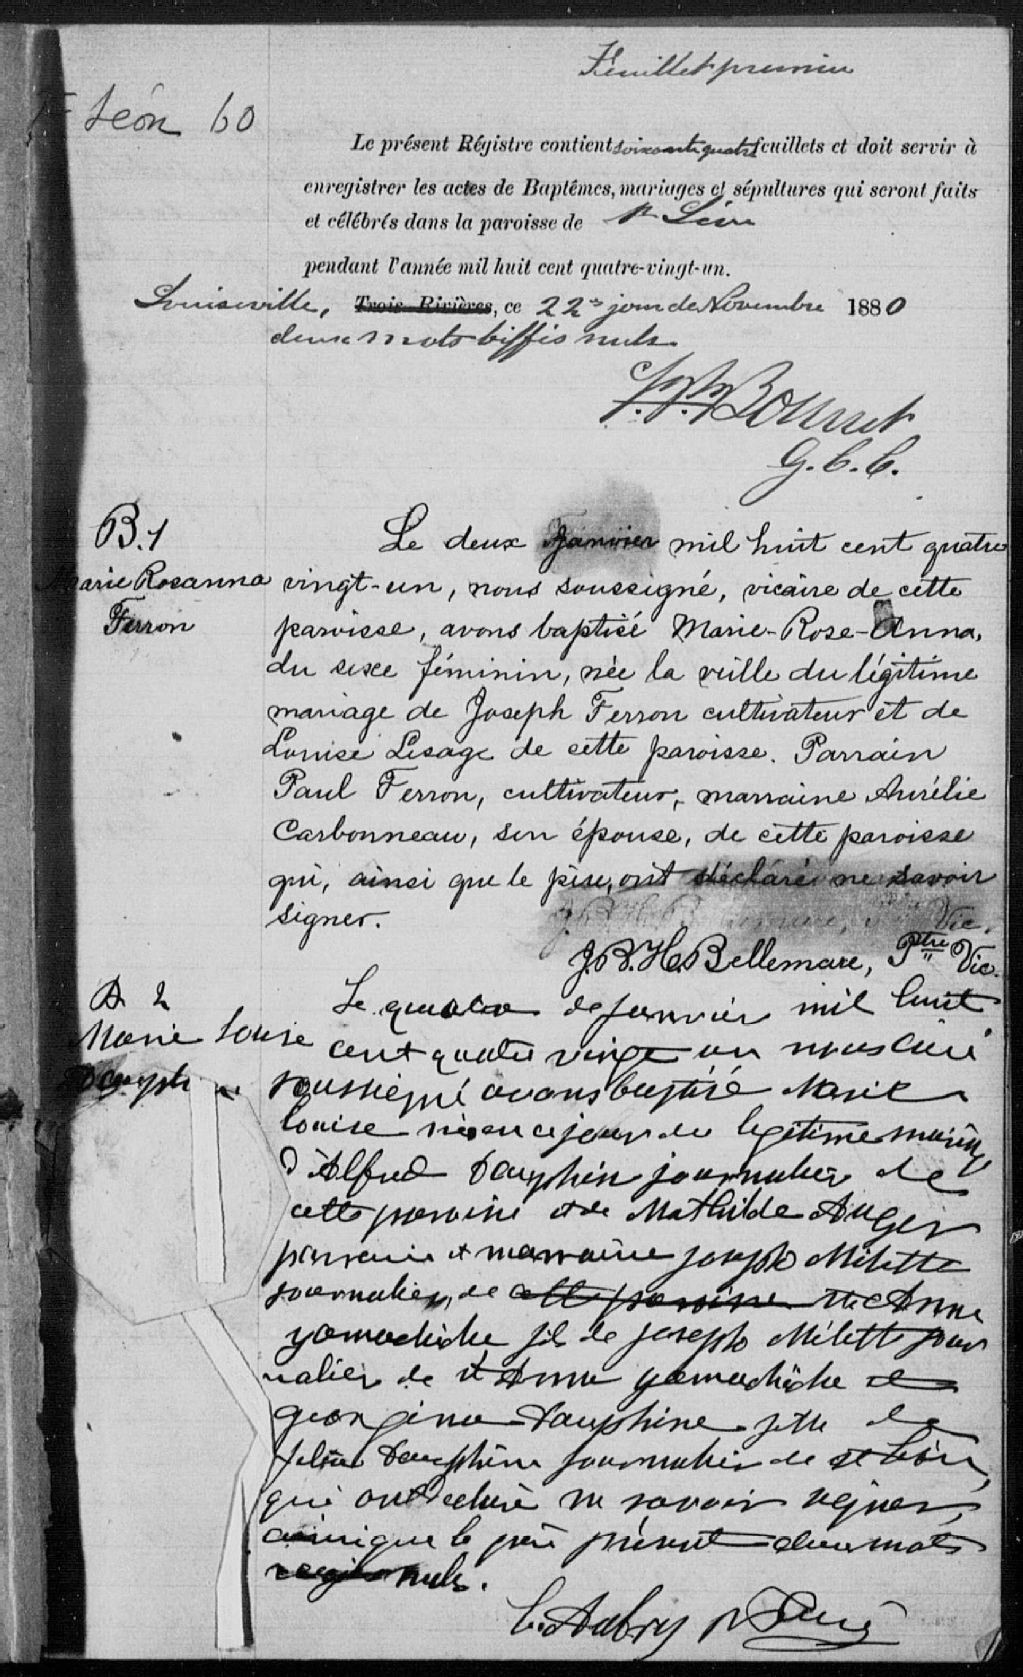 Feuillet premier
St Léon 60
Le présent Régistre contient soixante quatre feuillets et doit servir à
enregistrer les actes de Baptêmes, mariages et sépultures qui seront faits
et célébrés dans la paroisse de St Léon
pendant l'année mil huit cent quatre-vingt-un.
Louiseville, Trois Rivières, ce 22e jour de Novembre 1880
deux mots biffés nuls.
G.C.C.
B.1
Marie Rosanna
Ferron
Le deux Janvier mil huit cent quatre
vingt-un, nous soussigné, vicaire de cette
paroisse, avons baptisé Marie-Rose-Anna,
du sexe féminin, née la veille du légitime
mariage de Joseph Ferron cultivateur et de
Louise Lesage de cette paroisse. Parrain
Paul Ferron, cultivateur, marraine Aurélie
Carbonneau, son épouse, de cette paroisse
qui, ainsi que le père, ont déclaré ne savoir
signer.
J.B.H. Bellemare, Ptre Vic.
B 2
Marie Louise
Dauphin
Le quatre de Janvier mil huit
cent quatre vingt un nous curé
soussigné avons baptisé Marie
Louise née ce jour du legitime mariage
d'Alfred Dauphin journalier de
cette paroisse et de Mathilde Auger
parrain et marraine Joseph Milette
journalier, de cette paroisse Ste Anne
yamachiche fils de Joseph Milette jour
nalier de St Anne yamachiche et
georgina Dauphine fille de
Dauphine journalier de St Léon,
qui ont déclaré ne savoir signer,
ainsi que le père présent deux mots
nuls.
C. Aubry ptre Curé